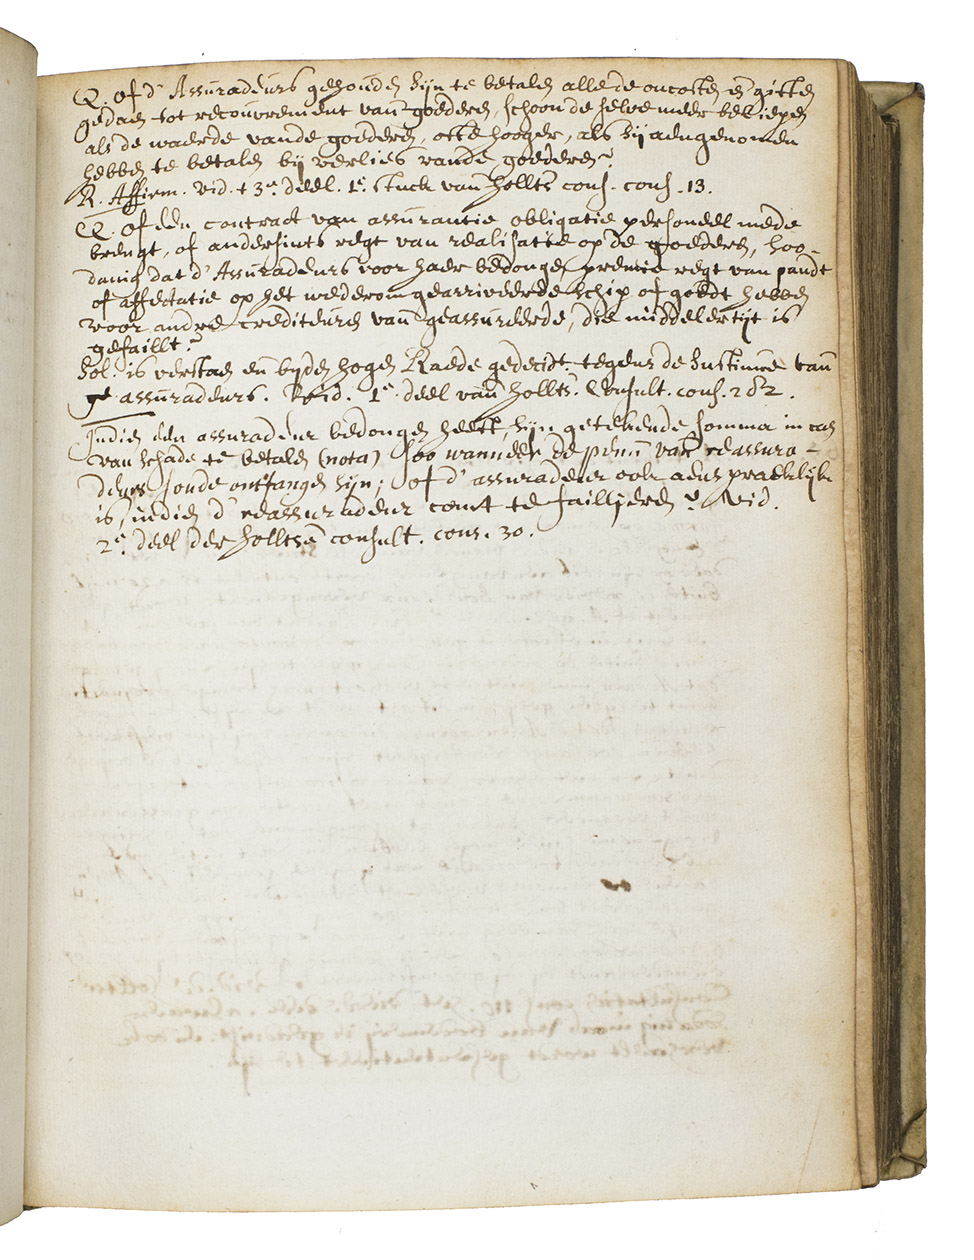 Q. Of d' Assuradeurs gehouden zijn te betalen alle de oncosten en giften
gedaen tot recouvrement van goederen, schoon de selve meer beliepen
als de waerde vande goederen, ofte hooger, als zij aengenomen
hebben te betalen bij verlies vande goederen?
R. Affirm. vid. 't 3e. deel. 1e. stuck van hollts cons. cons. 13.
Q. Of een contract van assurantie obligatie personeel mede
brengt, of andersints regt van realisatie op de goederen, hoo-
danig dat d' Assuradeurs voor haer bedongen premie regt van pandt
of affectatie op het wederom gearriveerde schip of goedt hebben
voor andre crediteuren van geassureerde, die middelertijt is
gefailleert?
Sol. is verstaen en bijden hogen Raede gedecidt. tegens de Sustinue van
assuradeurs. Vid. 1e. deel van hollts. Consult. cons. 282.
Indien een assuradeur bedongen heeft, sijn getekende somma in cas
van schade te betalen (nota) soo wanneer de penn van reassura-
deurs soude ontfangen sijn; of d' assuradeur ook aenspraekelijk
is, indien d' reassuradeur comt te faillijeren? Vid.
2e. deel der hollts consult. cons. 30.